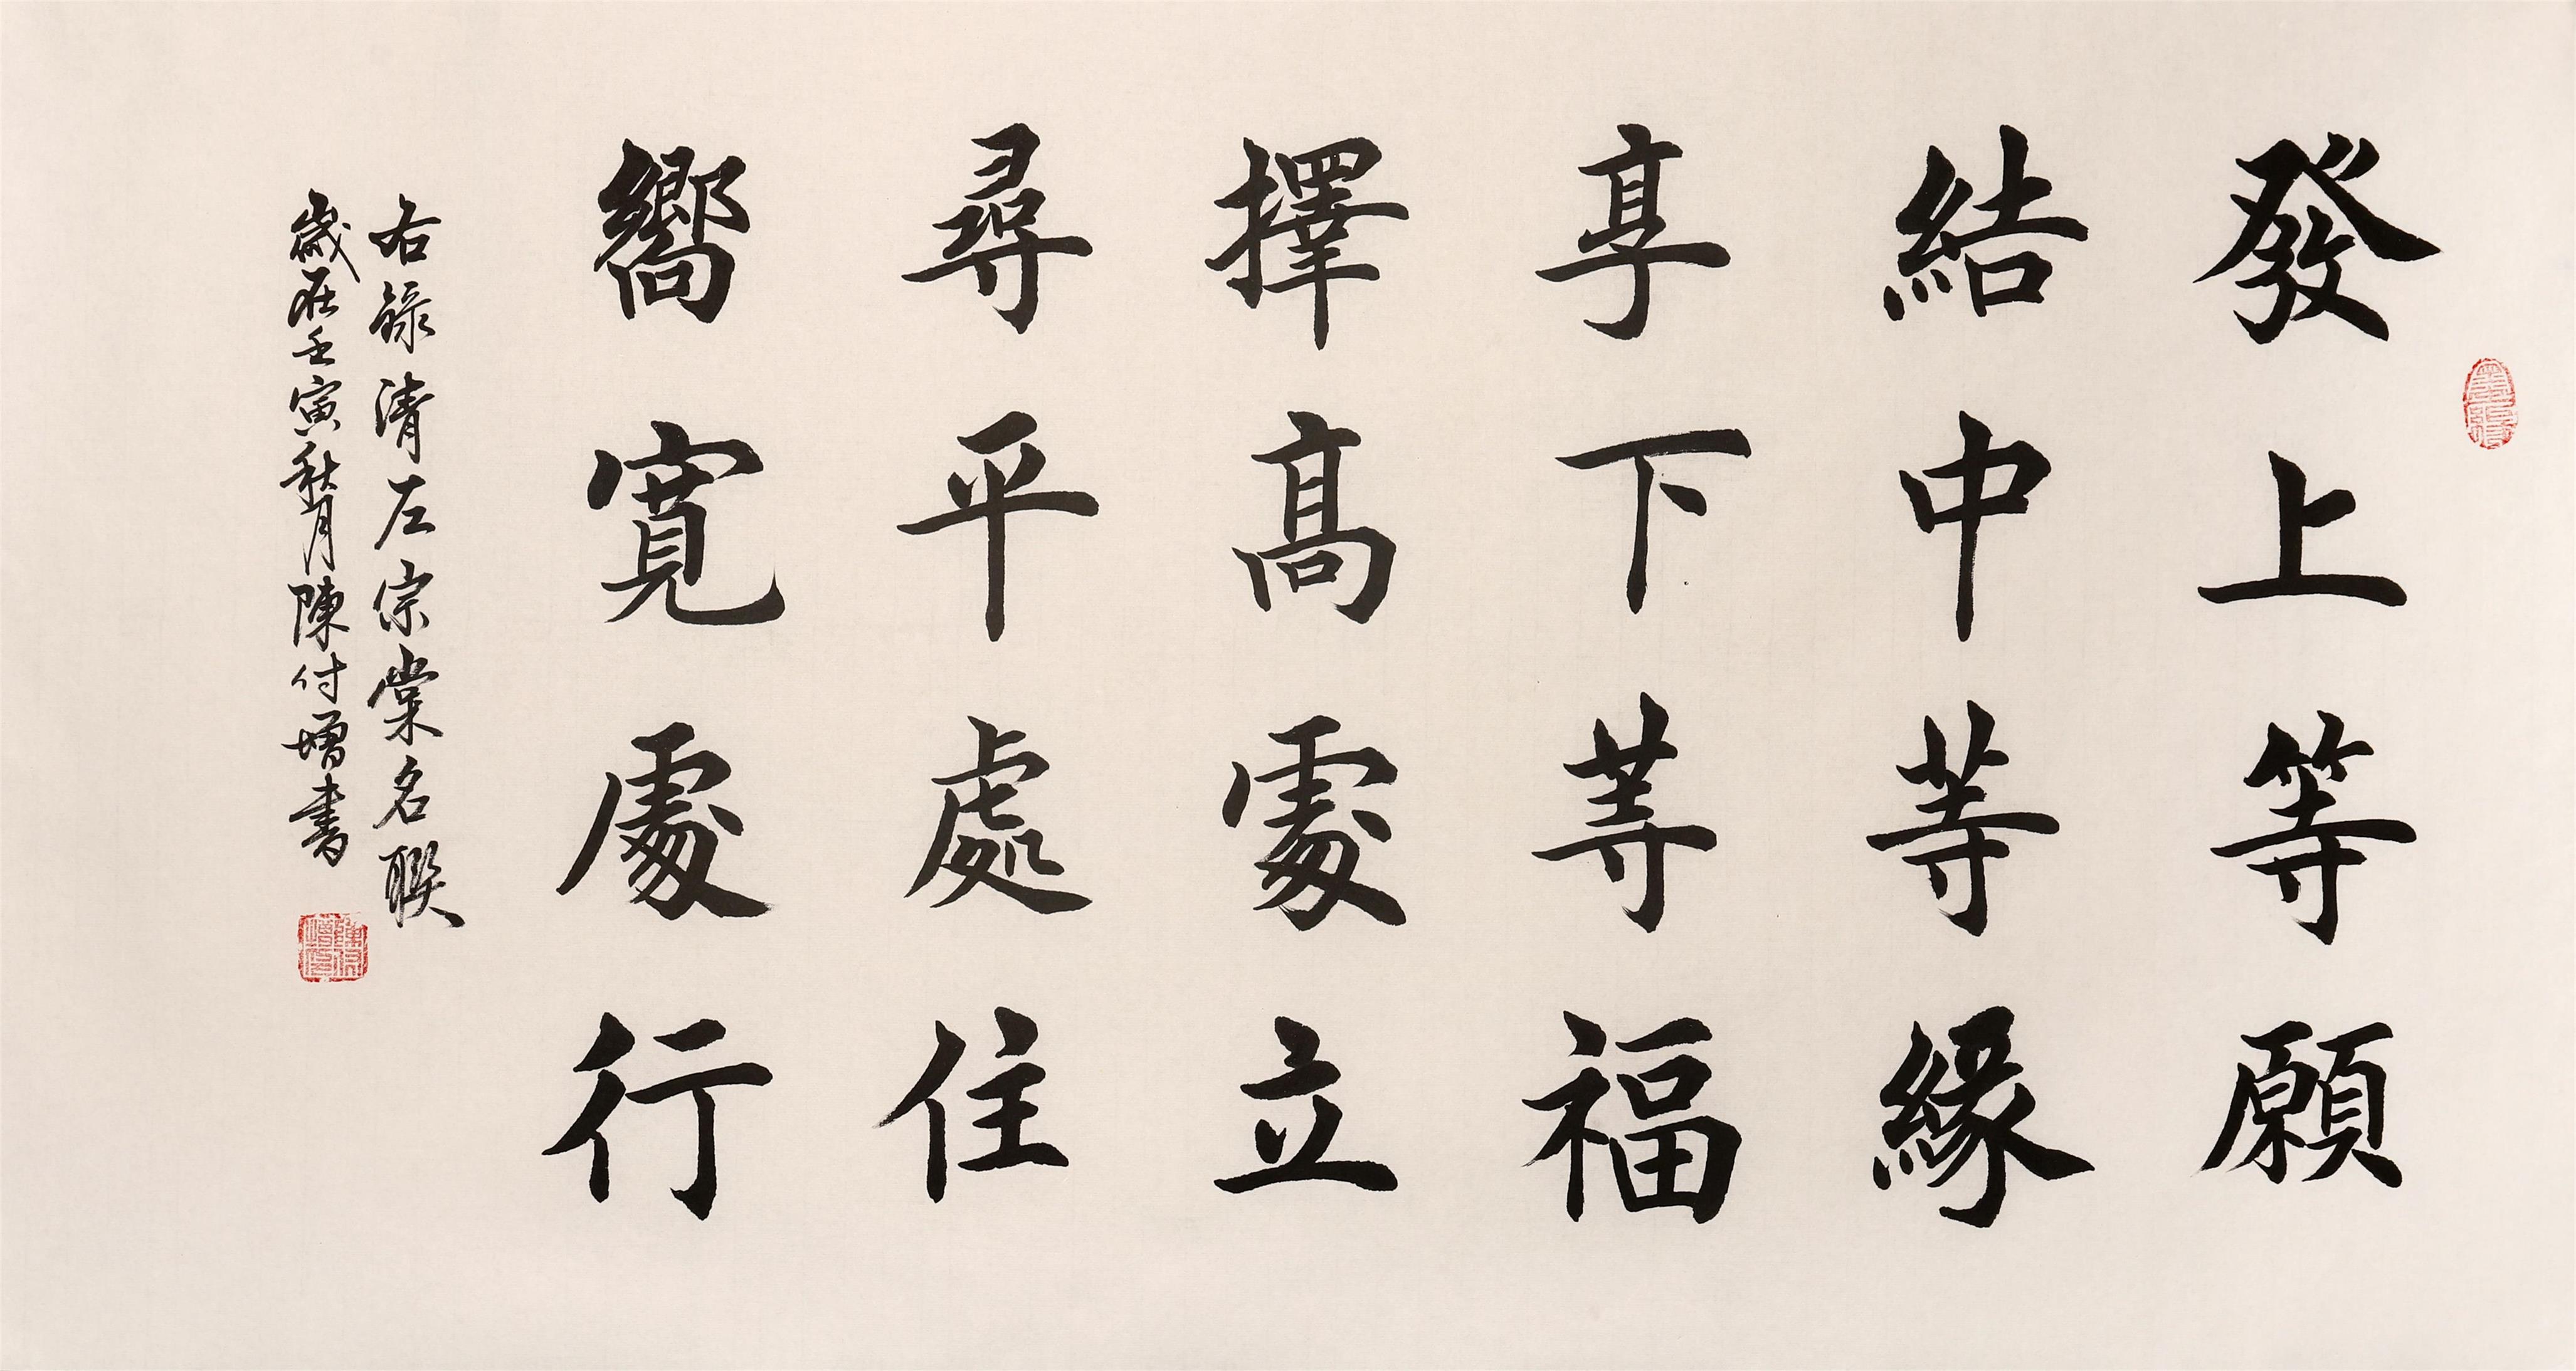 發上等願
結中等緣
享下等福
擇高處立
尋平處住
嚮寬處行
右錄清左宗棠名聯
歲在壬寅秋月陳付增書